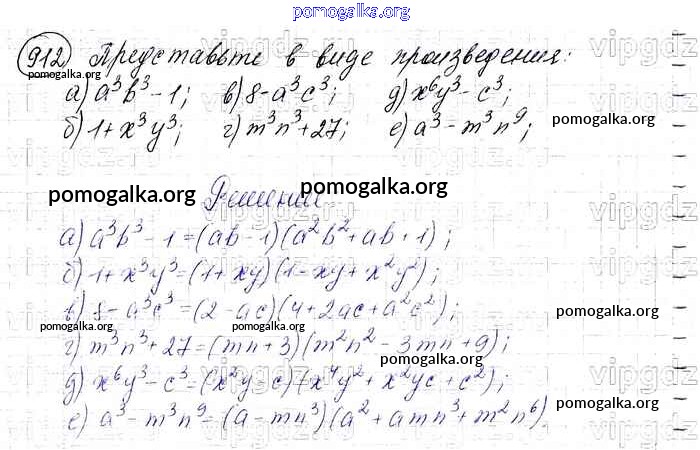 pomogalka.org
912 Представьте в виде произведения:
pomogalka.org
а) a³b³ - 1; в) 8 - a³c³; д) x⁶y³ - c³;
б) 1 + x³y³; г) m³n³ + 27; е) a³ - m³n⁹;
pomogalka.org
pomogalka.org
pomogalka.org
Решение
а) a³b³ - 1 = (ab - 1)(a²b² + ab + 1);
б) 1 + x³y³ = (1 + xy)(1 - xy + x²y²);
в) 8 - a³c³ = (2 - ac)(4 + 2ac + a²c²);
pomogalka.org
pomogalka.org
pomogalka.org
г) m³n³ + 27 = (mn + 3)(m²n² - 3mn + 9);
pomogalka.org
д) x⁶y³ - c³ = (x²y - c)(x⁴y² + x²yc + c²);
е) a³ - m³n⁹ = (a - mn³)(a² + amn³ + m²n⁶).
pomogalka.org
vipgdz.ru